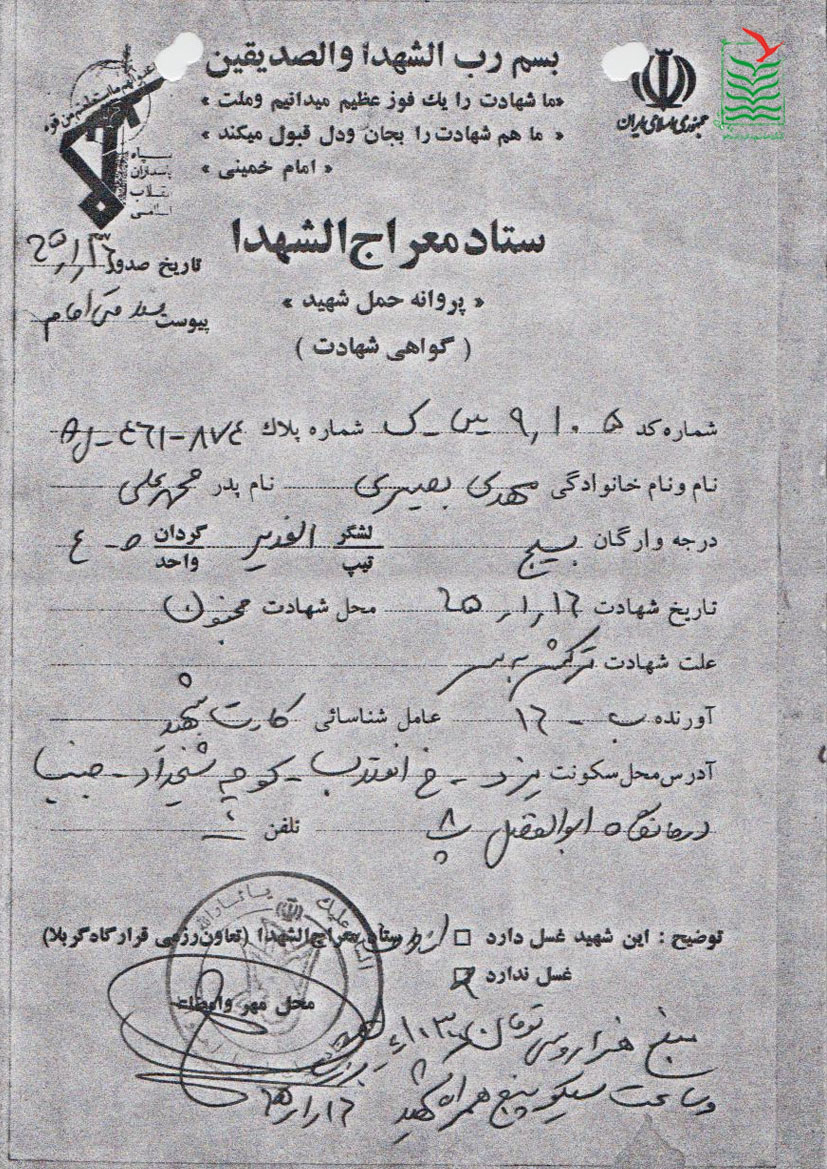 بسم رب الشهدا والصديقين
«ما شهادت را يك فوز عظيم ميدانيم وملت»
« ما هم شهادت را بجان ودل قبول ميكند »
« امام خمينى »
جمهوری اسلامی ایران
سپاه
پاسداران
انقلاب
اسلامى
ستاد معراج الشهدا
تاريخ صدور
« پروانه حمل شهيد »
پيوست
( گواهى شهادت )
شماره كد ٩,١٠٥ شماره پلاك ٨٧٤-٤٦١
نام ونام خانوادگى مهدی بصیری نام پدر محمدعلی
درجه وارگان بسیج لشگر تيپ الغدیر گردان واحد ص-٤
تاريخ شهادت ١٦ر١ر٦٥ محل شهادت مجنون
علت شهادت ترکش به سر
آورنده ب-١٦ عامل شناسائى کارت شهید
آدرس محل سكونت یزد - خ انقلاب - کوچه - جنب
درمانگاه ابوالفضل تلفن
توضيح : اين شهيد غسل دارد ستاد معراج الشهدا (تعاون رزمى قرارگاه كربلا)
غسل ندارد
محل مهر وامضاء
مبلغ هزار و سی تومان ١٠٣٠
و ساعت سیکو پنج همراه شهید
١٦ر١ر٦٥